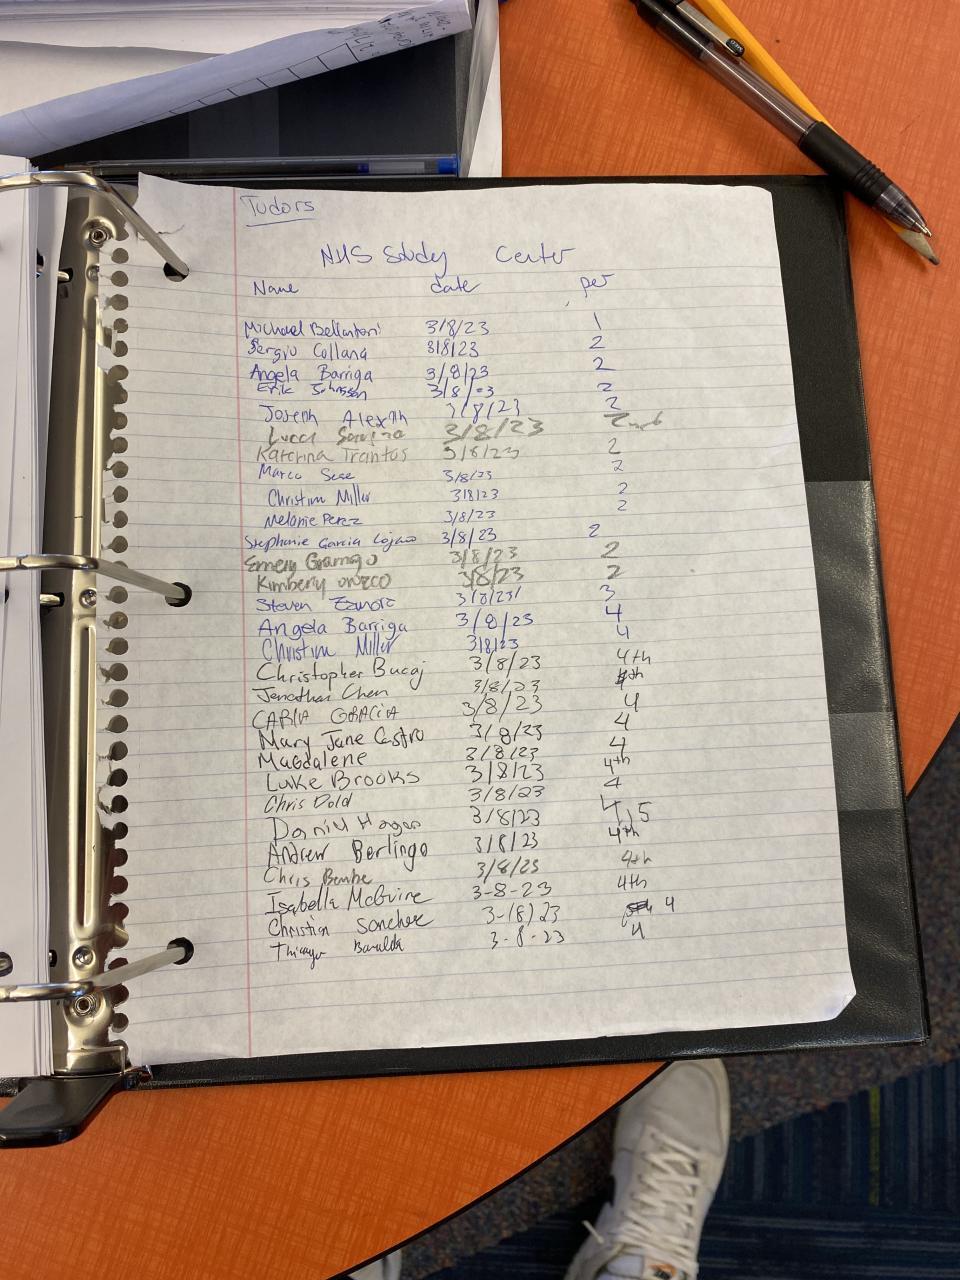 Tudors
NHS Study Center
Name date per
Michael Bellantoni 3/8/23 1
Sergio Collana 3/8/23 2
Angela Barriga 3/8/23 2
Erik Johnson 3/8/23 2
Joseph 3/8/23 2
Lucca 3/8/23 2
Katerina Trantos 3/8/23 2
Marco 3/8/23 2
Christian Miller 3/8/23 2
Melanie Perez 3/8/23 2
Stephanie Garcia Lojano 3/8/23 2
Emery 3/8/23 2
Kimberly orozco 3/8/23 2
Steven Zamora 3/8/23 3
Angela Barriga 3/8/23 4
Christian Miller 3/8/23 4
Christopher Bucaj 3/8/23 4th
Jonathan Chen 3/8/23 4th
CARLA GRACIA 3/8/23 4
Mary Jane Castro 3/8/23 4
Magdalene 3/8/23 4
Luke Brooks 3/8/23 4th
Chris Dold 3/8/23 4
Daniel Hagan 3/8/23 4,5
Andrew Berlingo 3/8/23 4th
Chris 3/8/23 4th
Isabella McGuire 3-8-23 4th
Christian Sanchez 3-(8)23 4
Thiago 3-8-23 4